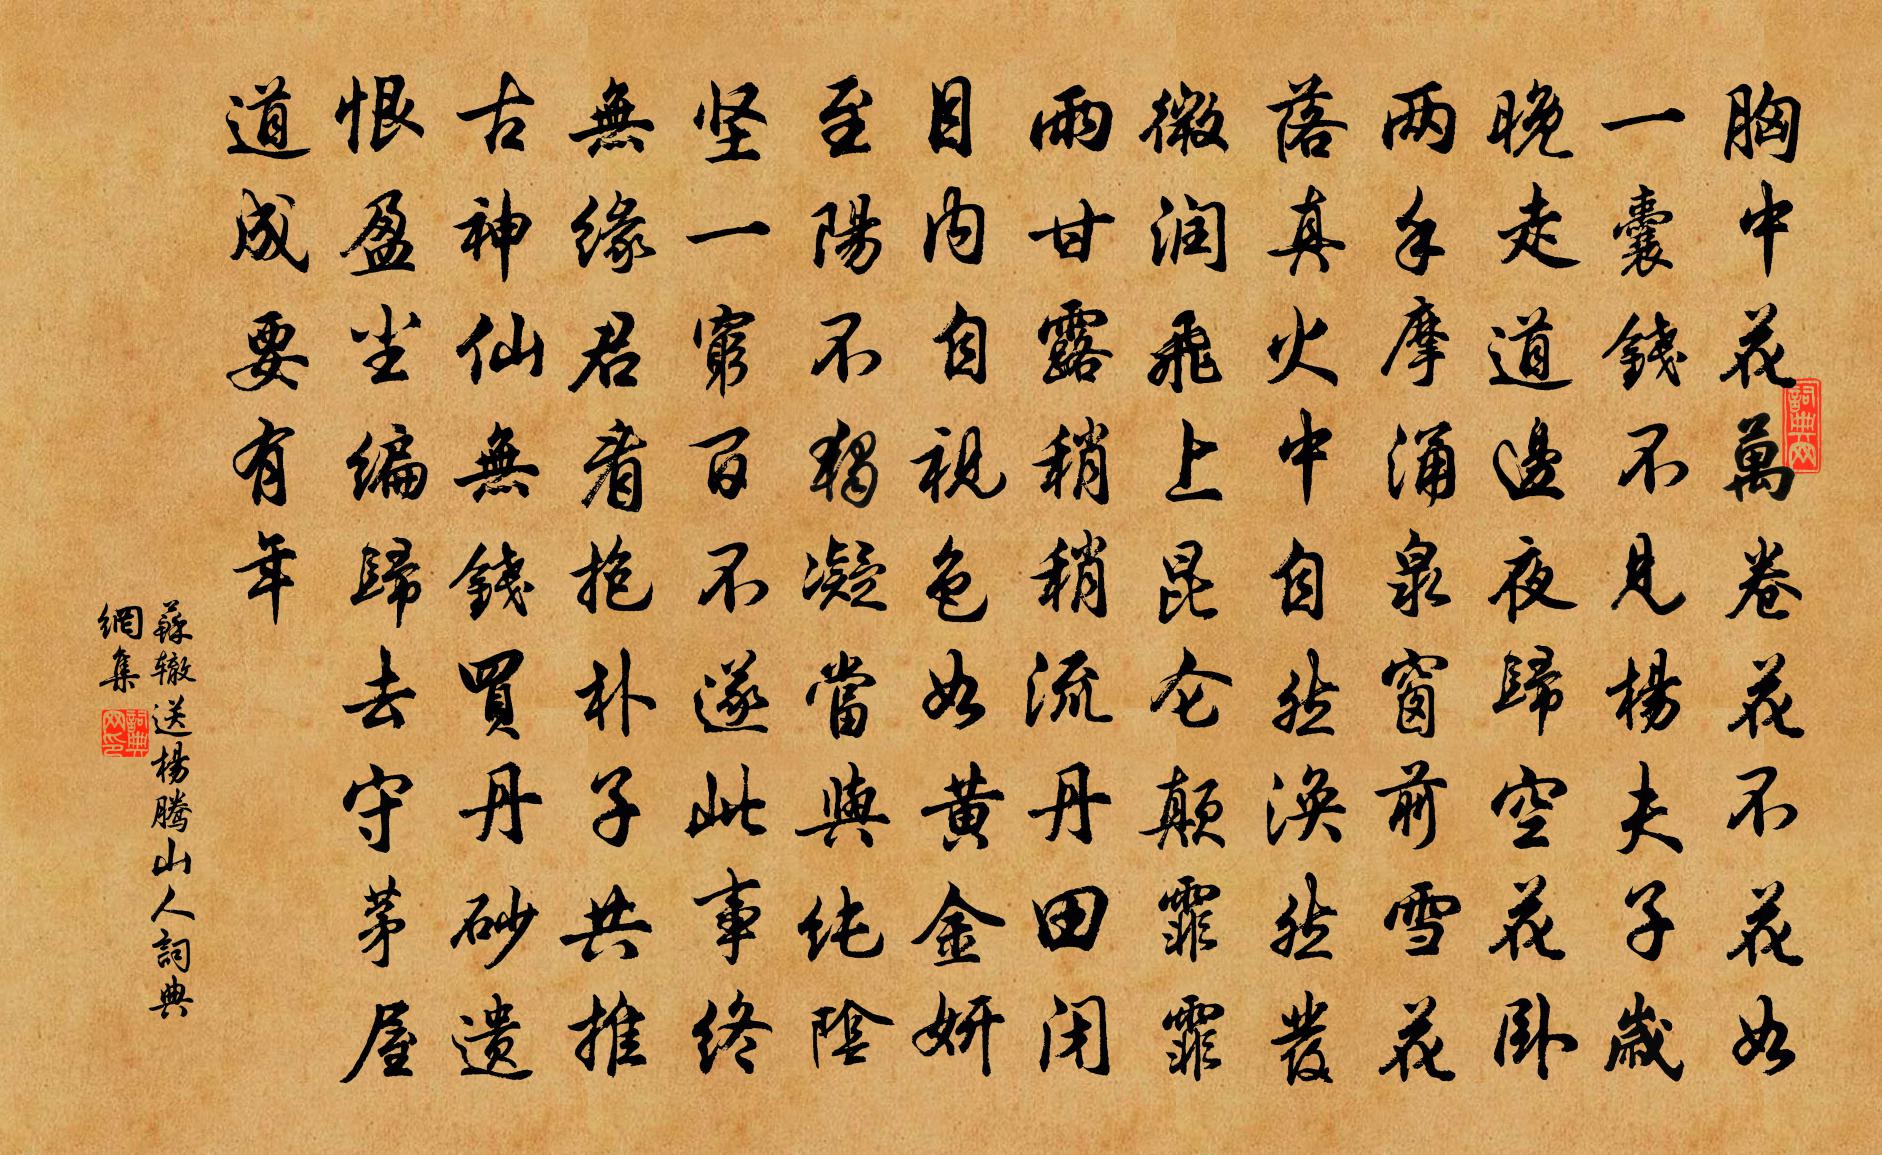 胸中萬卷花不花如
一囊錢不見楊夫子歲
晚走道邊夜歸空花卧
两手摩涌泉窗前雪花
落真火中自然渙然發
微润飛上昆仑颠霏霏
雨甘露稍稍流丹田闭
目内自視色如黄金妍
至陽不独凝當與纯陰
坚一窮百不遂此事终
無缘君看抱朴子共推
古神仙無錢買丹砂遗
恨盈坐编歸去守茅屋
道成要有年
蘇辙送楊腾山人詞典
網集
詞典网
詞典网印